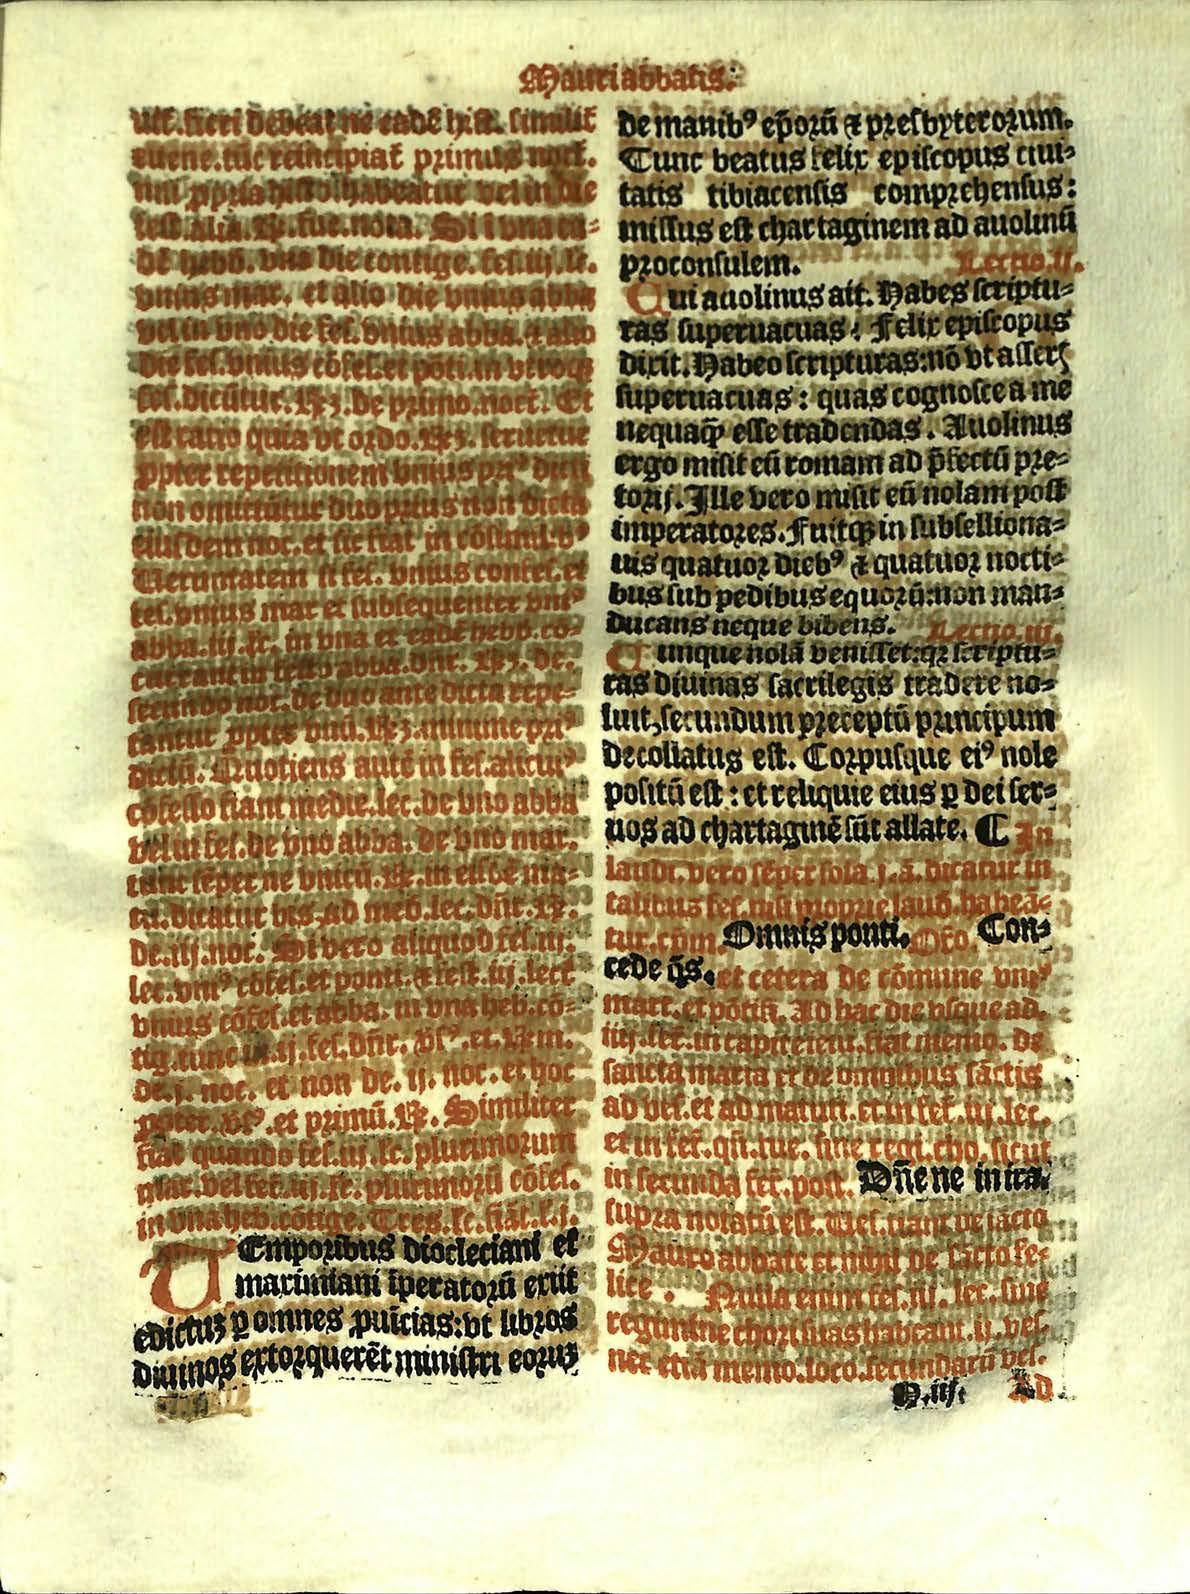 Mauri abbatis.
ult. fieri debeat ne eadē hist. simili
euene. tūc reincipiat̄ primus noct.
vel in die
fest. alia. Si i vna ea-
dē hebd. vna die contige. fes. iij. lc.
vnius mar. et alio die vnius abba
vel in vno die fes. vnius abba. ⁊ alio
die fes. vnius cōfes. et ponti. in vtroqꝫ
fes. dicūtur. ℞ꝫ. de primo. noct. Et
est ratio quia vt ordo. ℞ꝫ. seruetur
ꝓpter repetitionem vnius priꝰ dicti
non omittūtur duo prius non dicta
eiusdem noc. et sic fiat in cōsimil.
Uerumtamen si fes. vnius confes. et
fes. vnius mar et subsequenter vniꝰ
abba. iij. lc. in vna et eadē hebd. cō-
currant in festo abba. dnr. ℞ꝫ. de.
secundo noc. de duo ante dicta repe-
tantur ꝓpter vnū. ℞ꝫ. minime priꝰ
dictū. Quotiens autē in fes. alicuiꝰ
cōfesso fiant medie. lec. de vno abba
vel in fes. de vno abba. de vno mar.
tunc sēper ne vnicū. ℞. in eisdē ma-
tu. dicatur bis, ad med. lec. dn̄r. ℞.
de. iij. noc. Si vero aliquod fes. iij.
lec. vniꝰ cōfes. et ponti. ⁊ fest. iij. lect
vnius cōfes. et abba. in vna heb. cō-
tig. tunc in. ij. fes. dn̄r. vſꝰ. et. ℞. m.
de. j. noc. et non de. ij. noc. et hoc
ꝓpter. vſꝰ. et primū. ℞. Similiter
fiat quando fes. iij. lc. plurimorum
mar. vel fes. iij. lc. plurimorū cōfes.
in vna heb. cōtige. Tres. lc. fiāt. l. j.
TEmporibus diocleciani et
maximiani īperatorū exiit
edictuꝫ ꝑ omnes ꝓuīcias: vt libros
diuinos extorquerēt ministri eoruꝫ
de manibꝰ ep̄orū ⁊ presbyterorum.
Tunc beatus felix episcopus ciui-
tatis tibiacensis comprehensus:
missus est chartaginem ad auolinū
proconsulem. Lectio. ij.
Cui auolinus ait. Habes scriptu-
ras superuacuas: Felix episcopus
dixit. Habeo scripturas: nō vt asser⸗
superuacuas: quas cognosce a me
nequaqꝫ esse tradendas. Auolinus
ergo misit eū romam ad p̄fectū pre-
torij. Ille vero misit eū nolam post
imperatores. Fuitqꝫ in subselliona-
uis quatuor diebꝰ ⁊ quatuor nocti-
bus sub pedibus equorū: non man-
ducans neque bibens. Lectio. iij.
Cunque nolā venisset: qꝛ scriptu-
ras diuinas sacrilegis tradere no-
luit, secundum preceptū principum
decollatus est. Corpusque eiꝰ nole
positū est: et reliquie eius ꝑ dei ser-
uos ad chartaginē sūt allate. ¶ In
laudi. vero sēper sola. j. ā. dicatur in
talibus fes. nisi proprie laud. habeā-
tur. cum. Omnis ponti. Or̄o. Con-
cede q̄s. et cetera de cōmune vniꝰ
mart. et pōtifi. Ab hac die vsque ad.
iiij. fer. in capite ieiu. fiat memo. de
sancta maria et de omnibus sāctis
ad ves. et ad matuti. et in fes. iij. lec.
et in fer. qn̄. fue. sine regi. cho. sicut
in secunda fer. post. Dn̄e ne in ira.
supra notatū est. Ues. fiant de sācto
Mauro abbate et nihil de sācto fe-
lice. Nulla enim fes. iij. lec. sine
regimine chori suas habeant. ij. ves.
nec etiā memo. loco. secundarū ves.
N. iij. Ad